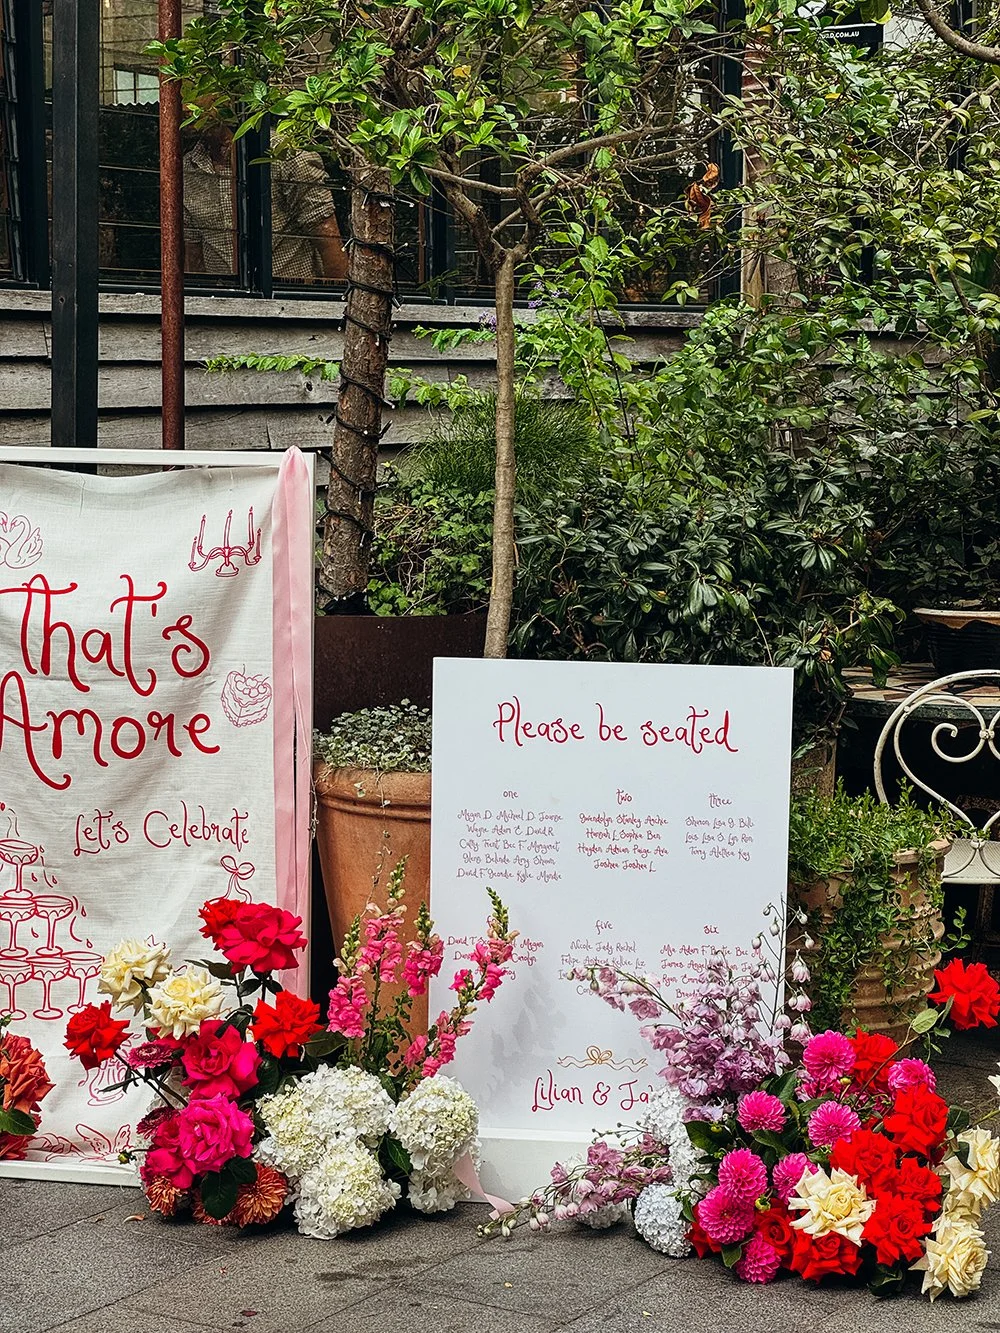 D.COM.AU
That's
Amore
Let's Celebrate
Please be seated
one
two
three
Megan D. Michael D. Joanne
Wayne Adam C. David R
Cathy Trent Bec F. Margaret
Glenn Belinda Amy Shaun
David F. Geordie Kylie Mardie
Gwendolyn Stanley Archie
Hannah L Sophia Ben
Hayden Adrian Paige Ava
Joshua Joshua L
Sharon Lisa G. Bill
Lois Lisa S. Lyn Ron
Terry Alethea Kay
David T.
Megan
Carolyn
five
Nicole Jady Rachel
Felipe Andrew Kelvin Liz
six
Mia Adam F. Bertie Bec M
James
Ryan
Lilian & Ja